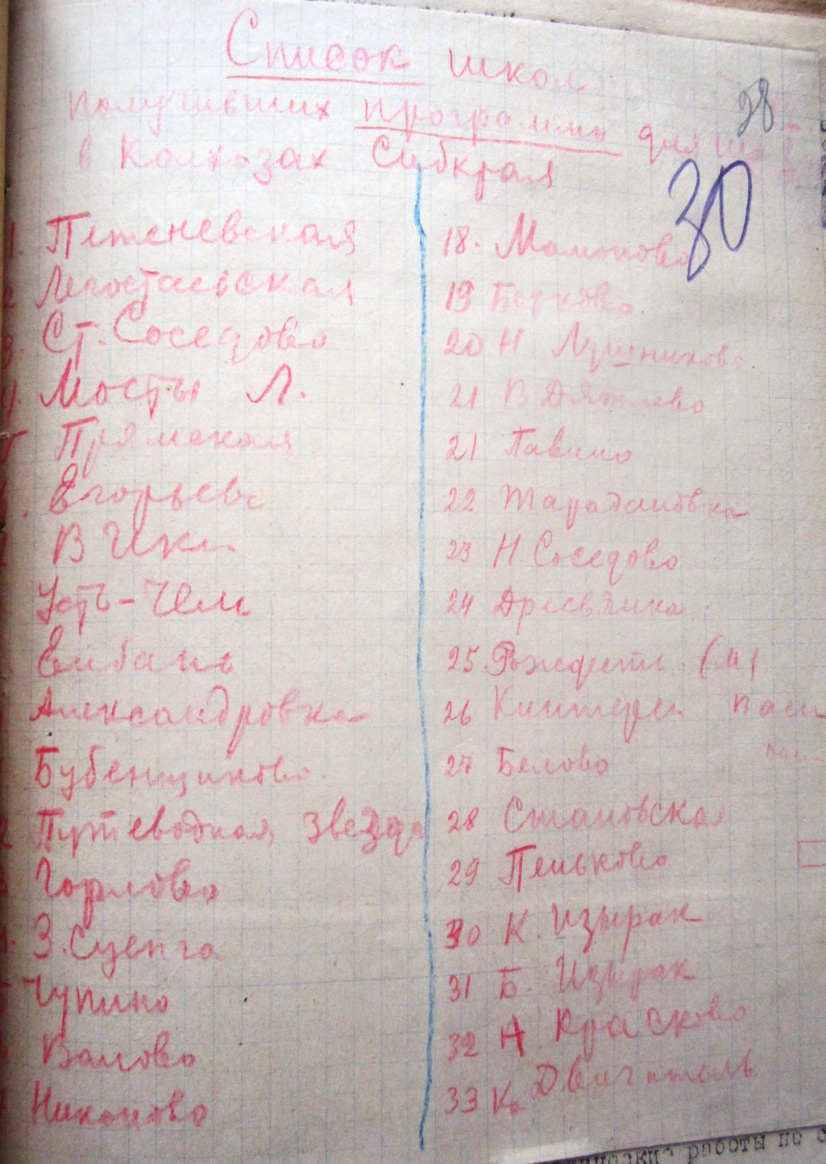 Список школ
получивших программы для школ
в Колхозах Сибкрая
38
30
1. Петеневская
2 Легостаевская
3. Ст. Соседово
4. Мосты Л.
5 Прямская
6. Егорьевс
7 В Ики
Усть-Чем
Елбань
Александровка
Бубенщиково.
12 Путеводная звезда
13 Горлово
14. З. Суенга
15 Чупино
Валово
Никоново
18. Мамоново
19 Борково.
20 Н Лушниково
21 В Дятлево
21 Павино
22 Тарадановка
23 Н. Соседово
24 Дресвянка
25 Рождеств. (М)
26 Кинтереп
27 Белово
28 Становская
29 Пеньково
30 К. Изырак
31 Б. Изырак
32 Н Красково
33 К. Двигатель
работы по с